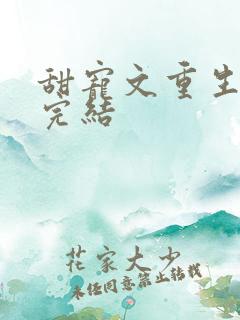 甜寵文重生
完結
花家大少
未经同意禁止转载